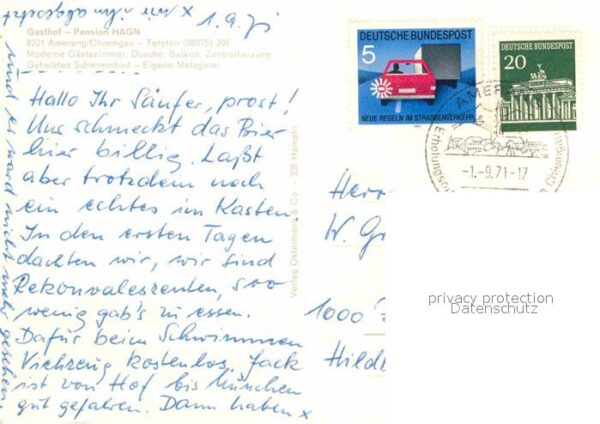 x wir ihn abgesetzt
1.9.71
Gasthof – Pension HAGN
8201 Amerang/Chiemgau – Telefon (08075) 207
Moderne Gästezimmer, Dusche, Balkon, Zentralheizung
Geheiztes Schwimmbad – Eigene Metzgerei
Hallo Ihr Säufer, prost!
Uns schmeckt das Bier
hier billig. Laßt
aber trotzdem noch
ein echtes im Kasten
In den ersten Tagen
dachten wir, wir sind
Rekonvaleszenten, soo
wenig gab's zu essen.
Dafür beim Schwimmen
Viehzeug kostenlos. Jack
ist von Hof bis München
gut gefahren. Dann haben x
und es ward nicht mehr gesehen
Verlag Ostermann & Co. – 325 Hameln
DEUTSCHE BUNDESPOST
5
NEUE REGELN IM STRASSENVERKEHR
DEUTSCHE BUNDESPOST
20
AMER
Erholungsor
Chiemgau
-1.-9.71-17
Herr
W. Gr
1000
Hilde
privacy protection
Datenschutz